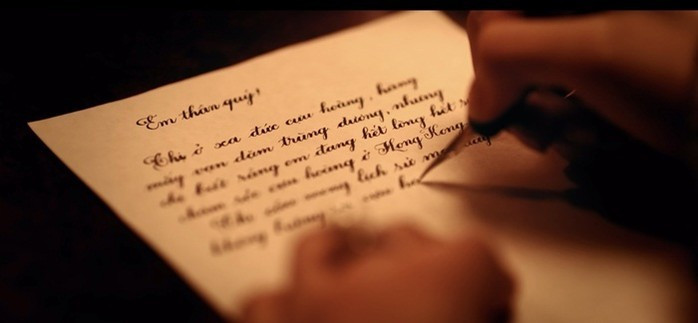 Em thân quý!
Chị ở xa đức cựu hoàng, hàng
mấy vạn dặm trùng dương, nhưng
chị biết rằng em đang hết lòng hết
chăm sóc cựu hoàng ở HongKong
Chị mong lịch sử
không